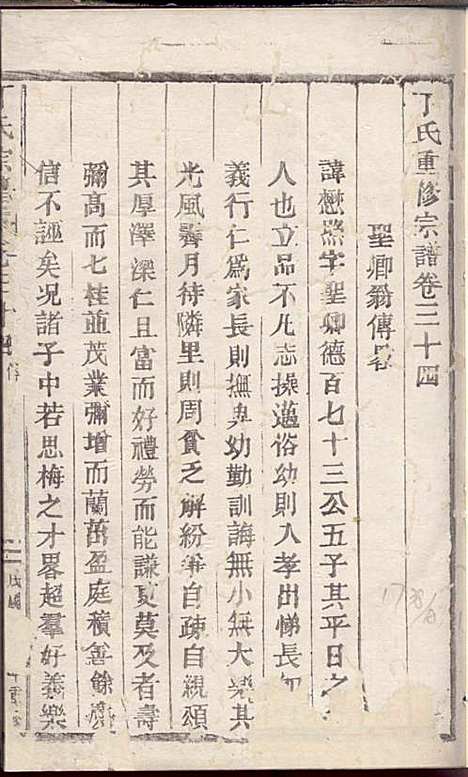 丁氏重修宗譜卷三十四
聖卿翁傳畧
諱懋熙字聖卿德百七十三公五子其平日之
人也立品不凡志操邁俗幼則入孝出悌長
義行仁為家長則撫與幼勤訓誨無小無大
其
光風霽月待隣里則周貧乏解紛爭自疎自親頌
其厚澤深仁且富而好禮勞而能謙夐莫及者壽
彌高而七桂並茂業彌增而蘭茁盈庭積善餘慶
信不誣矣况諸子中若思梅之才畧超羣好義樂